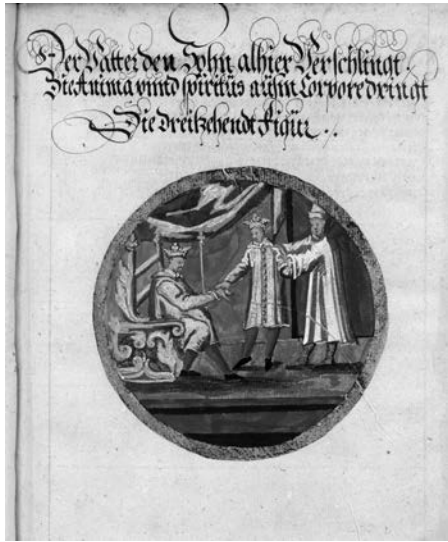 Der Vatter den Sohn alhier Verschlingt.
Die Anima vnnd spiritus außm Corpore dringt
Die dreitzehendt Figur.